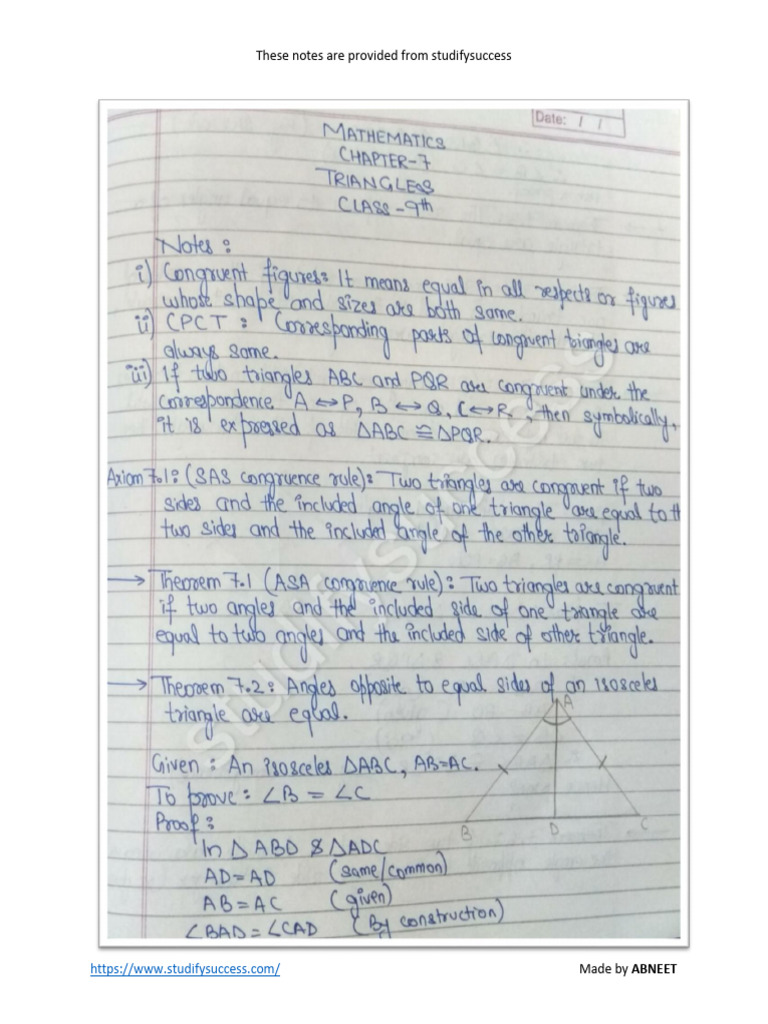 These notes are provided from studifysuccess
Date: / /
MATHEMATICS
CHAPTER-7
TRIANGLES
CLASS-9th
Notes:
i) Congruent figures: It means equal in all respects or figures
whose shape and sizes are both same.
ii) CPCT: Corresponding parts of congruent triangles are
always same.
iii) If two triangles ABC and PQR are congruent under the
correspondence A↔P, B↔Q, C↔R, then symbolically,
it is expressed as ΔABC≅ΔPQR.
Axiom 7.1: (SAS congruence rule): Two triangles are congruent if two
sides and the included angle of one triangle are equal to th
two sides and the included angle of the other triangle.
→ Theorem 7.1 (ASA congruence rule): Two triangles are congruent
if two angles and the included side of one triangle are
equal to two angles and the included side of other triangle.
→ Theorem 7.2: Angles opposite to equal sides of an isosceles
triangle are equal.
A
Given: An isosceles ΔABC, AB=AC.
To prove: ∠B = ∠C
B D C
Proof:
In Δ ABD & ΔADC
AD=AD (same/common)
AB=AC (given)
∠BAD=∠CAD (By construction)
studifysuccess
https://www.studifysuccess.com/ Made by ABNEET